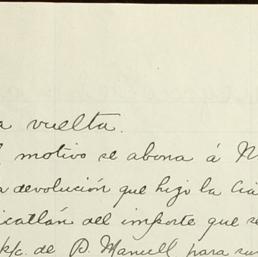 a vuelta.
motivo se abona á N
devolución que hizo la Cia
icatlán del importe que se
k/c. de P. Manuell para su